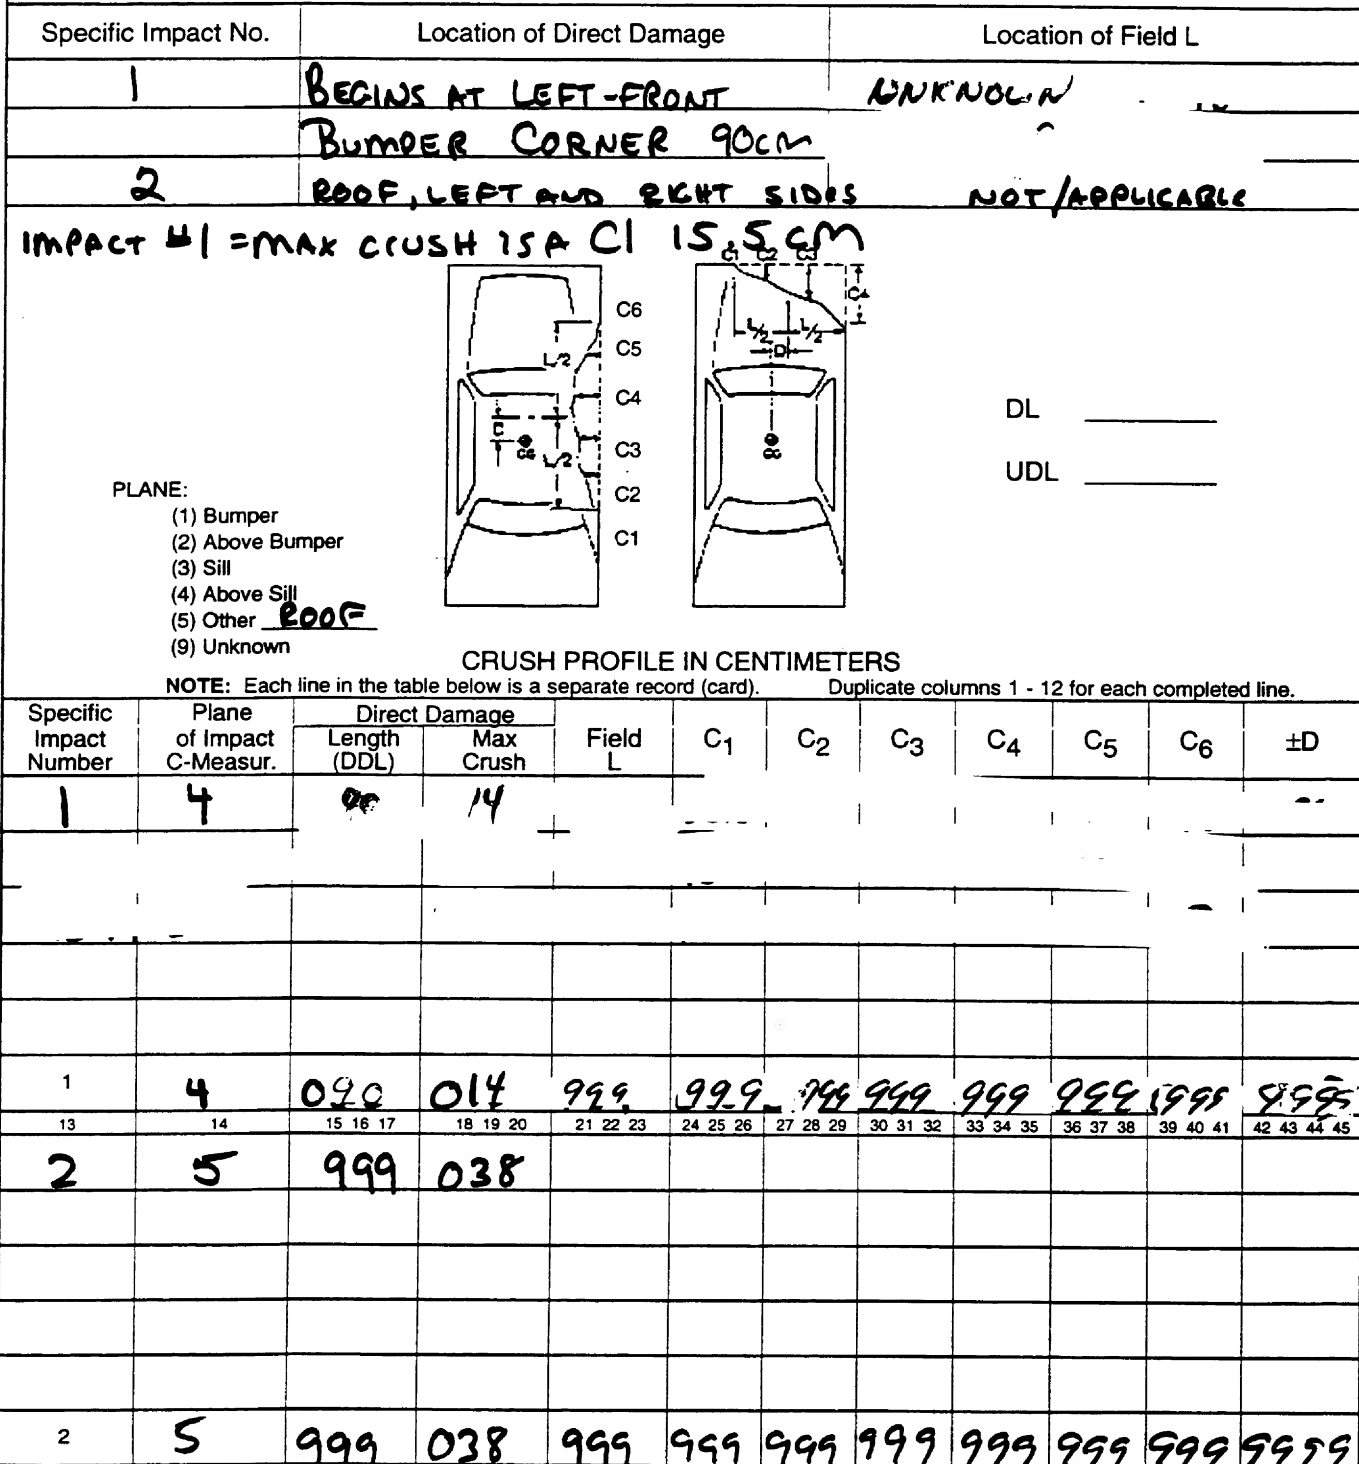 Specific Impact No. Location of Direct Damage Location of Field L
1 BEGINS AT LEFT-FRONT UNKNOWN
BUMPER CORNER 90cm
2 ROOF, LEFT AND RIGHT SIDES NOT/APPLICABLE
IMPACT #1 = MAX CRUSH IS A C1 15.5 cm
C1 C2 C3
C4
C6
C5
C4
C3
C2
C1
L/2
L/2
D
CG
L/2 L/2
D
CG
DL
UDL
PLANE:
(1) Bumper
(2) Above Bumper
(3) Sill
(4) Above Sill
(5) Other ROOF
(9) Unknown
CRUSH PROFILE IN CENTIMETERS
NOTE: Each line in the table below is a separate record (card). Duplicate columns 1 - 12 for each completed line.
Specific Plane Direct Damage
Impact of Impact Length Max Field C1 C2 C3 C4 C5 C6 ±D
Number C-Measur. (DDL) Crush L
1 4 90 14
1 4 090 014 999 999 999 999 999 999 999 9999
13 14 15 16 17 18 19 20 21 22 23 24 25 26 27 28 29 30 31 32 33 34 35 36 37 38 39 40 41 42 43 44 45
2 5 999 038
2 5 999 038 999 999 999 999 999 999 999 9999